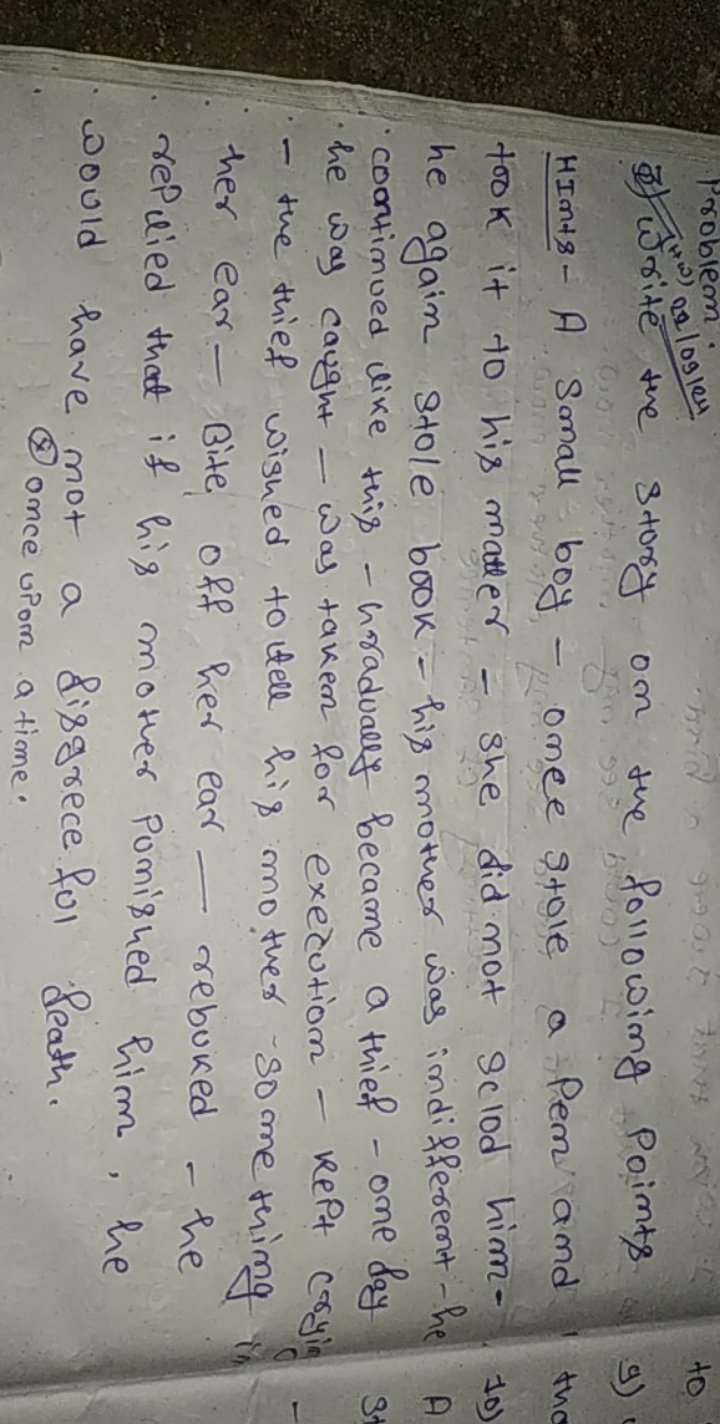 Problem.
H.W) 09/09/24
8) Write the story on the following Points
HInts - A small boy - once stole a Pen and
took it to his matter - she did not sclod him-
he again stole book - his mother was indifferent - he
continued like this - hradually became a thief - one day
he was caught - was taken for execution - kept cryin
- the thief wished to tell his mother some thing in
ther ear - Bite off her ear - rebuked - he
repiied that if his mother Punished him, he
would have not a disgrece ful death.
* once upon a time.
to
g)
tha
to)
A
St